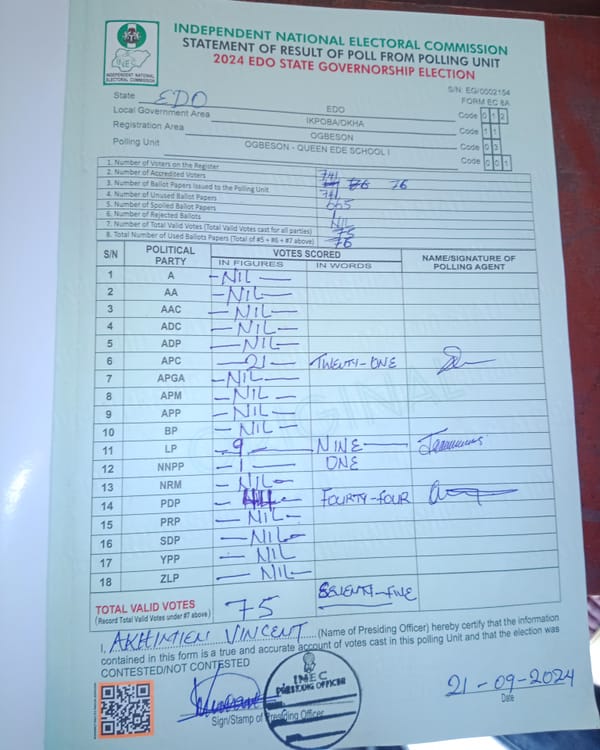 INDEPENDENT NATIONAL ELECTORAL COMMISSION
STATEMENT OF RESULT OF POLL FROM POLLING UNIT
2024 EDO STATE GOVERNORSHIP ELECTION
INEC
INDEPENDENT NATIONAL
ELECTORAL COMMISSION
S/N: EG/0002154
FORM EC 8A
State EDO EDO Code 0 1 2
Local Government Area IKPOBA/OKHA Code 1 1
Registration Area OGBESON Code 0 3
Polling Unit OGBESON - QUEEN EDE SCHOOL I Code 0 0 1
1. Number of Voters on the Register 741
2. Number of Accredited Voters 76
3. Number of Ballot Papers Issued to the Polling Unit 741
4. Number of Unused Ballot Papers 665
5. Number of Spoiled Ballot Papers
6. Number of Rejected Ballots NIL
7. Number of Total Valid Votes (Total Valid Votes cast for all parties) 75
8. Total Number of Used Ballots Papers (Total of #5 + #6 + #7 above) 76
S/N POLITICAL PARTY VOTES SCORED NAME/SIGNATURE OF POLLING AGENT
IN FIGURES IN WORDS
1 A - NIL -
2 AA - NIL -
3 AAC - NIL -
4 ADC - NIL -
5 ADP - NIL -
6 APC - 21 - TWENTY-ONE
7 APGA - NIL -
8 APM - NIL -
9 APP - NIL -
10 BP - NIL -
11 LP - 9 - NINE -
12 NNPP - 1 - ONE
13 NRM - NIL -
14 PDP - 44 - FOURTY-FOUR
15 PRP - NIL -
16 SDP - NIL -
17 YPP - NIL
18 ZLP - NIL -
TOTAL VALID VOTES 75 SEVENTY-FIVE
(Record Total Valid Votes under #7 above)
I, AKHIMIEN VINCENT (Name of Presiding Officer) hereby certify that the information
contained in this form is a true and accurate account of votes cast in this polling Unit and that the election was
CONTESTED/NOT CONTESTED
INEC
PRESIDING OFFICER
Sign/Stamp of Presiding Officer
21-09-2024
Date